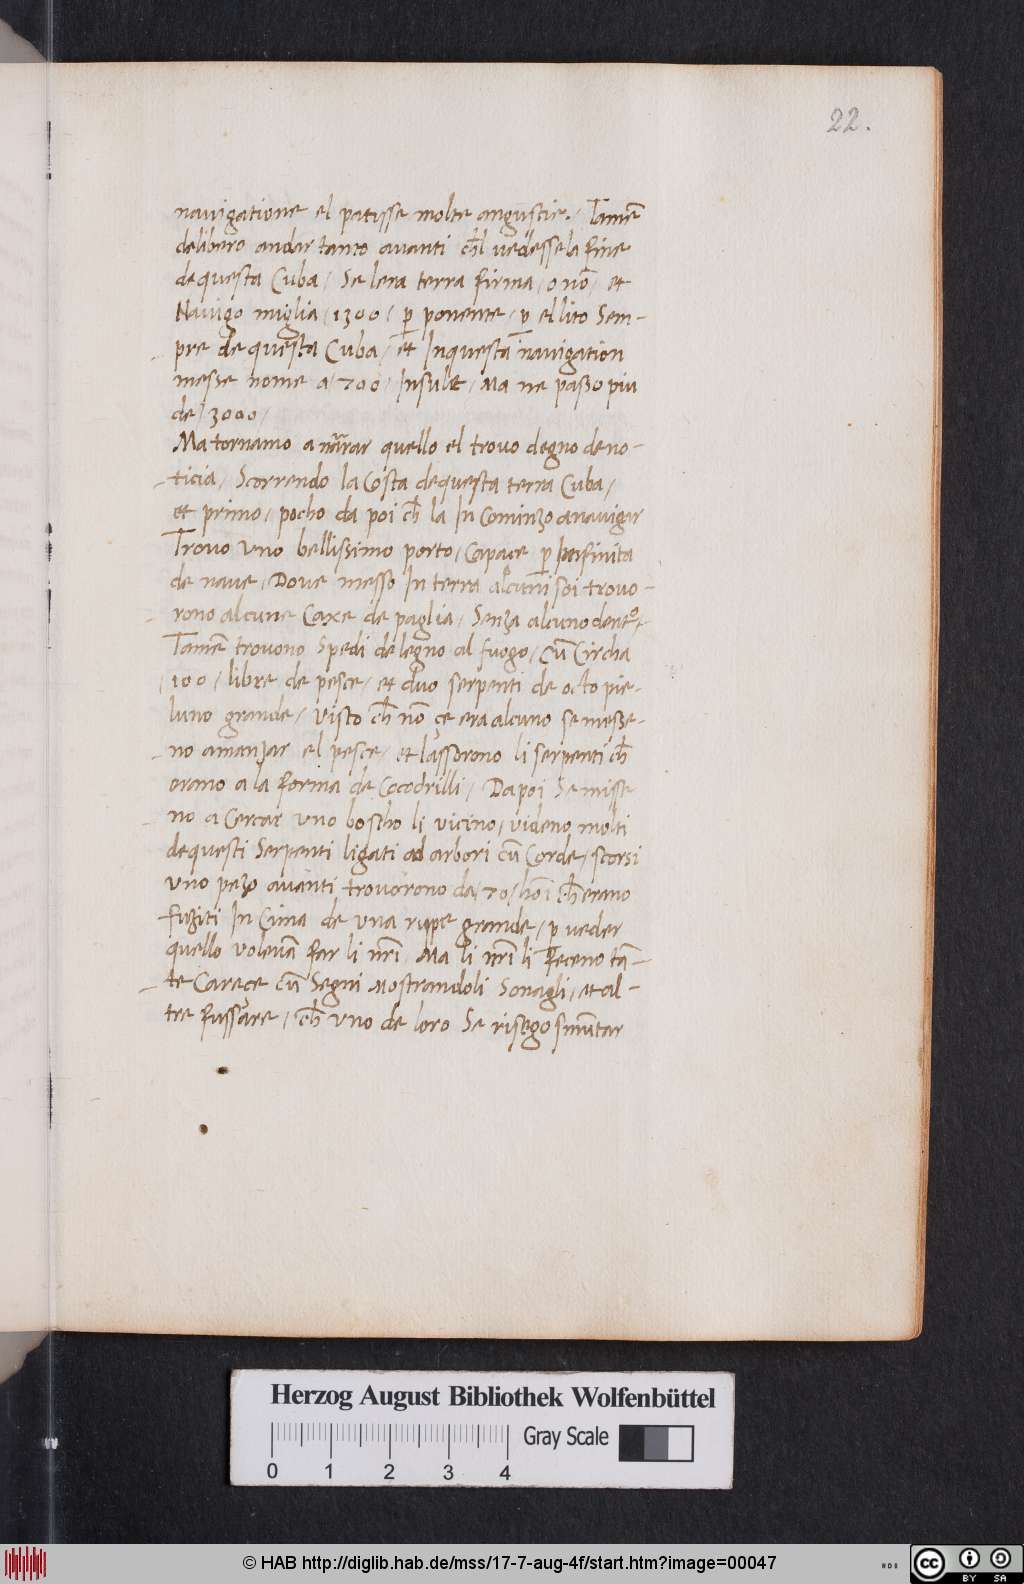 22.
nauigatione el patisse molte angustie. / Tamē
delibero andar tanto auanti ch̄l uedesse la fine
de questa Cuba / Se lera terra firma / o nō / et
Nauigo miglia / 1300 / ꝑ ponente / ꝑ el lito Sem-
pre de questa Cuba / et Inquesta nauigation
messe nome a / 700 / Insule / Ma ne passo piu
de / 3000 /
Ma tornamo a nārar quello el trouo degno de no-
ticia / Scorrendo la Costa de questa terra Cuba /
et primo / pocho da poi ch̄ la In Cominzo a nauigar
Trouo Vno bellissimo porto / Capace ꝑ Infinita
de naue / Doue messo In terra alcuni soi trouo-
rono alcune Caxe de paglia / Senza alcuno dentº /
Tamē trouono Spedi de legno al fuogo / cū Circha
/ 100 / libre de pesce / et duo serpenti de octo pie-
luno grande / Visto ch̄ nō çe era alcuno se messe-
no a manzar el pesce / et lassorono li serpenti ch̄
erano a la forma de Cocodrilli / Da poi Se misse
no a Cercar Vno boscho li vicino / videno molti
de questi Serpenti ligati ad arbori cū Corde / scorsi
Vno pezo auanti trouorono da / 70 / hoī ch̄ erano
fuziti In Cima de Vna rupe grande / ꝑ ueder
quello voleuā far li nr̄i / Ma li nr̄i li feceno tā-
te Careçe cū Segni Mostrandoli Sonagli / et al-
tre fussare / ch̄ Vno de loro Se risego smūtar
Herzog August Bibliothek Wolfenbüttel
Gray Scale
0 1 2 3 4
© HAB http://diglib.hab.de/mss/17-7-aug-4f/start.htm?image=00047
CC BY SA